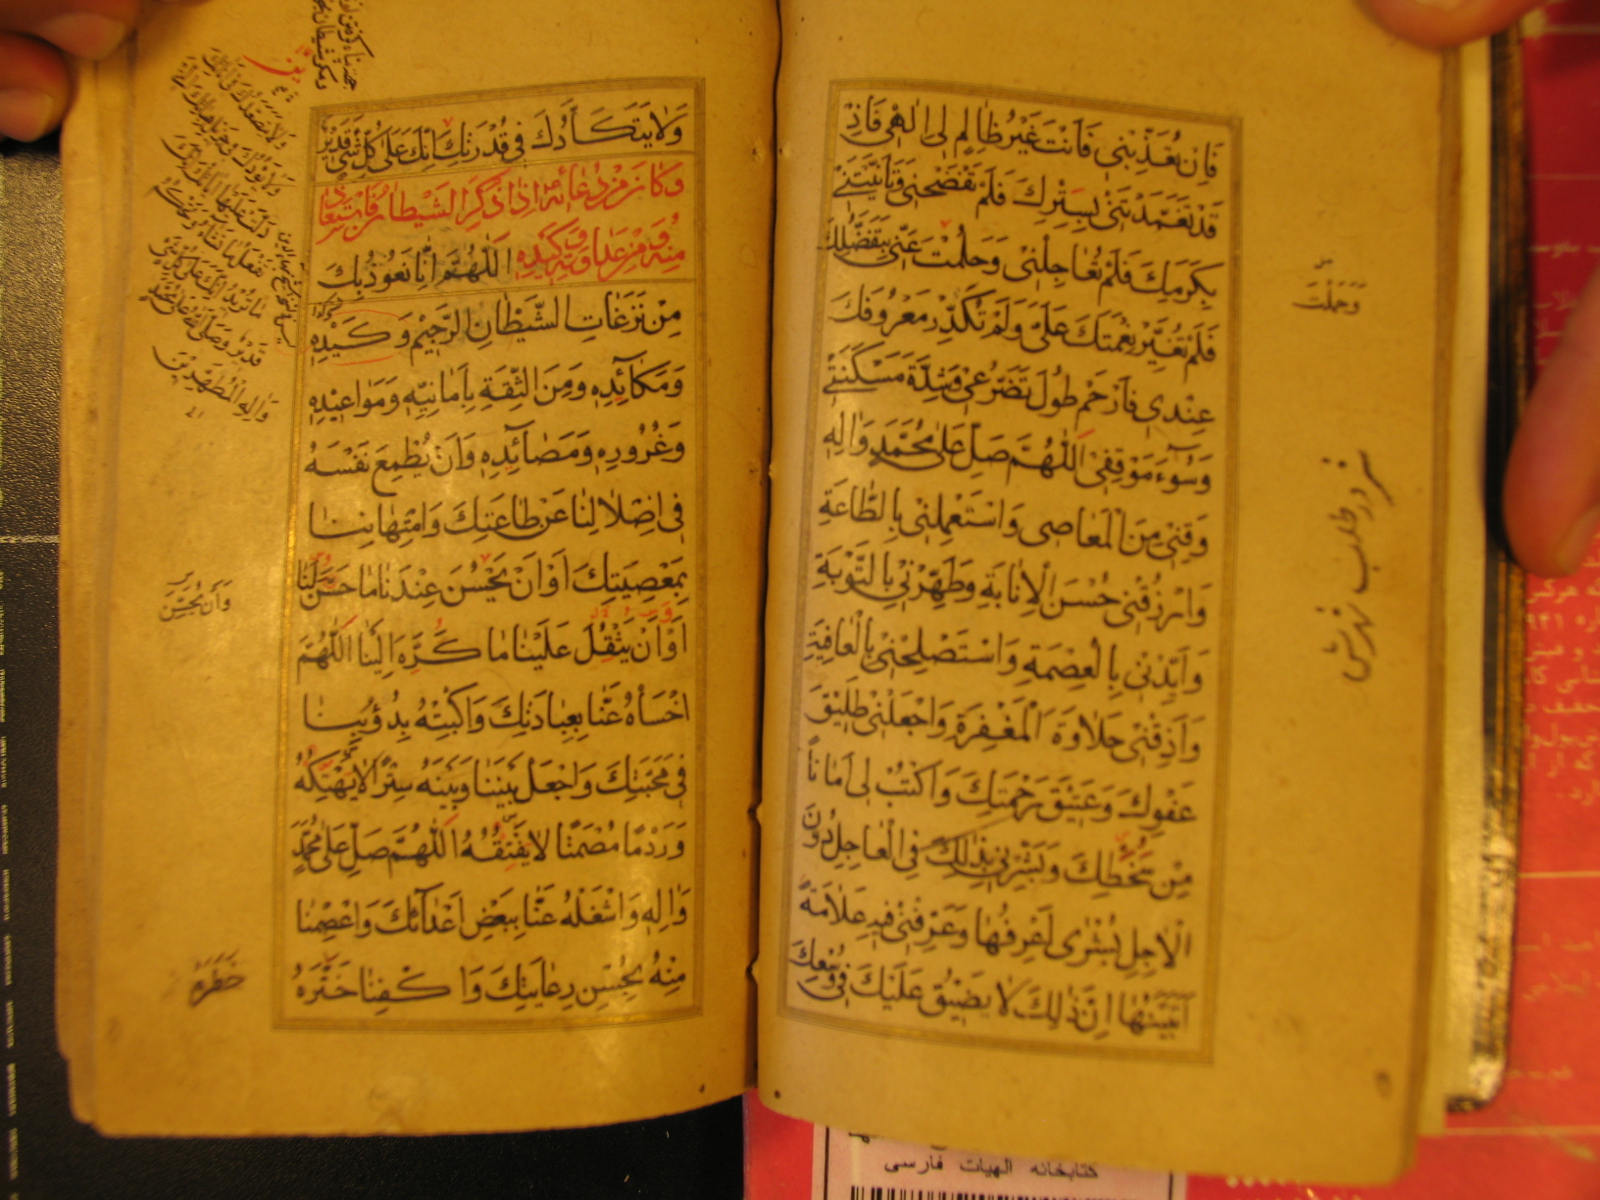 فَاِنْ تُعَذِّبْنِي فَاَنْتَ غَيْرُ ظَالِمٍ لِي اِلٰهِي فَاِذْ
قَدْ تَغَمَّدْتَنِي بِسِتْرِكَ فَلَمْ تَفْضَحْنِي وَتَاَنَّيْتَنِي
بِكَرَمِكَ فَلَمْ تُعَاجِلْنِي وَحَلُمْتَ عَنِّي بِتَفَضُّلِكَ
فَلَمْ تُغَيِّرْ نِعْمَتَكَ عَلَيَّ وَلَمْ تُكَدِّرْ مَعْرُوفَكَ
عِنْدِي فَارْحَمْ طُولَ تَضَرُّعِي وَشِدَّةَ مَسْكَنَتِي
وَسُوٓءَ مَوْقِفِي اَللّٰهُمَّ صَلِّ عَلٰى مُحَمَّدٍ وَاٰلِهِ
وَقِنِي مِنَ الْمَعَاصِي وَاسْتَعْمِلْنِي بِالطَّاعَةِ
وَارْزُقْنِي حُسْنَ الْاِنَابَةِ وَطَهِّرْنِي بِالتَّوْبَةِ
وَاَيِّدْنِي بِالْعِصْمَةِ وَاسْتَصْلِحْنِي بِالْعَافِيَةِ
وَاَذِقْنِي حَلَاوَةَ الْمَغْفِرَةِ وَاجْعَلْنِي طَلِيقَ
عَفْوِكَ وَعَتِيقَ رَحْمَتِكَ وَاكْتُبْ لِي اَمَانًا
مِنْ سَخَطِكَ وَبَشِّرْنِي بِذٰلِكَ فِي الْعَاجِلِ دُونَ
الْاٰجِلِ بُشْرٰى اَعْرِفُهَا وَعَرِّفْنِي فِيهِ عَلَامَةً
اَتَبَيَّنُهَا اِنَّ ذٰلِكَ لَا يَضِيقُ عَلَيْكَ فِي وُسْعِكَ
وَحَمَلْتَ
وَلَا يَتَكَأَّدُكَ فِي قُدْرَتِكَ اِنَّكَ عَلٰى كُلِّ شَيْءٍ قَدِيرٌ
وَكَانَ مِنْ دُعَائِهِ اِذَا ذَكَرَ الشَّيْطَانَ فَاسْتَعَاذَ
مِنْهُ وَمِنْ عَدَاوَتِهِ وَكَيْدِهِ اَللّٰهُمَّ اِنَّا نَعُوذُ بِكَ
مِنْ نَزَغَاتِ الشَّيْطَانِ الرَّجِيمِ وَكَيْدِهِ
وَمَكَائِدِهِ وَمِنَ الثِّقَةِ بِاَمَانِيِّهِ وَمَوَاعِيدِهِ
وَغُرُورِهِ وَمَصَائِدِهِ وَاَنْ يُطْمِعَ نَفْسَهُ
فِي اِضْلَالِنَا عَنْ طَاعَتِكَ وَامْتِهَانِنَا
بِمَعْصِيَتِكَ اَوْ اَنْ يَحْسُنَ عِنْدَنَا مَا حَسَّنَ لَنَا
اَوْ اَنْ يَثْقُلَ عَلَيْنَا مَا كَرَّهَ اِلَيْنَا اَللّٰهُمَّ
اخْسَأْهُ عَنَّا بِعِبَادَتِكَ وَاكْبِتْهُ بِدُؤُبِنَا
فِي مَحَبَّتِكَ وَاجْعَلْ بَيْنَنَا وَبَيْنَهُ سِتْرًا لَا يَهْتِكُهُ
وَرَدْمًا مُصْمَتًا لَا يَفْتُقُهُ اَللّٰهُمَّ صَلِّ عَلٰى مُحَمَّدٍ
وَاٰلِهِ وَاشْغَلْهُ عَنَّا بِبَعْضِ اَعْدَائِكَ وَاعْصِمْنَا
مِنْهُ بِحُسْنِ رِعَايَتِكَ وَاكْفِنَا خَتْرَهُ
وَاَنْ يُحَسِّنَ
خَطَرَهُ
وَاٰلِهِ الْمُطَهَّرِينَ
كتابخانه الهيات فارسی